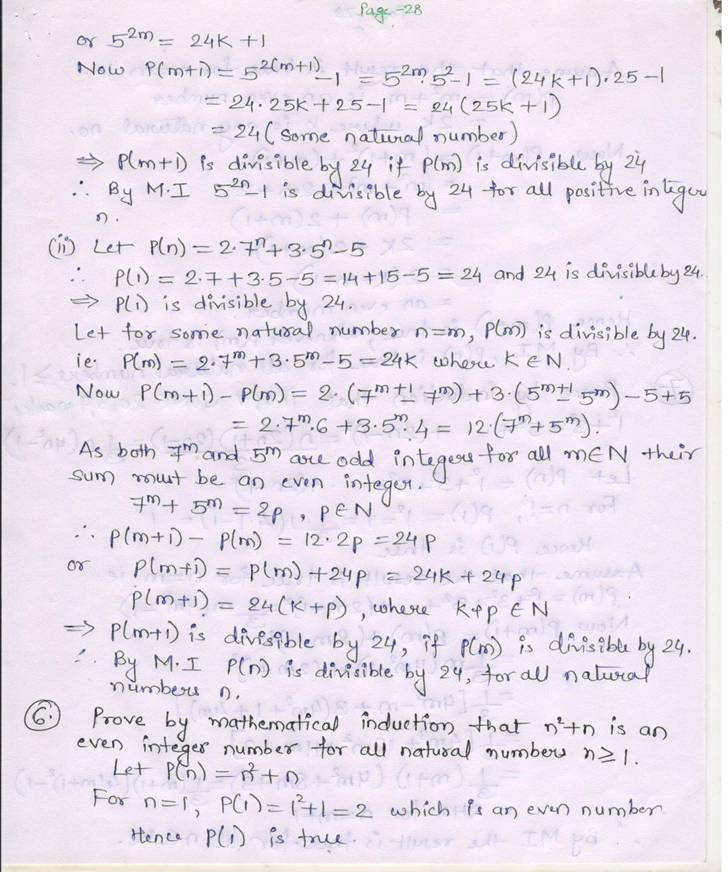 Page-28
or 5^{2m} = 24k + 1
Now P(m+1) = 5^{2(m+1)} - 1 = 5^{2m}. 5^2 - 1 = (24k+1).25 - 1
= 24.25k + 25 - 1 = 24(25k+1)
= 24(some natural number)
⇒ P(m+1) is divisible by 24 if P(m) is divisible by 24
∴ By M.I 5^{2n}-1 is divisible by 24 for all positive integer
n.
(ii) Let P(n) = 2.7^n + 3.5^n - 5
∴ P(1) = 2.7 + 3.5 - 5 = 14 + 15 - 5 = 24 and 24 is divisible by 24.
⇒ P(1) is divisible by 24.
Let for some natural number n=m, P(m) is divisible by 24.
ie. P(m) = 2.7^m + 3.5^m - 5 = 24k where k ∈ N.
Now P(m+1) - P(m) = 2.(7^{m+1} - 7^m) + 3.(5^{m+1} - 5^m) - 5 + 5
= 2.7^m.6 + 3.5^m.4 = 12.(7^m + 5^m).
As both 7^m and 5^m are odd integers for all m∈N their
sum must be an even integer.
7^m + 5^m = 2p, p∈N
∴ P(m+1) - P(m) = 12.2p = 24p
or P(m+1) = P(m) + 24p = 24k + 24p
P(m+1) = 24(k+p), where k&p ∈ N
⇒ P(m+1) is divisible by 24, if P(m) is divisible by 24.
∴ By M.I P(n) is divisible by 24, for all natural
numbers n.
(6.) Prove by mathematical induction that n²+n is an
even integer number for all natural numbers n≥1.
Let P(n) = n²+n
For n=1, P(1) = 1²+1 = 2 which is an even number.
Hence P(1) is true.